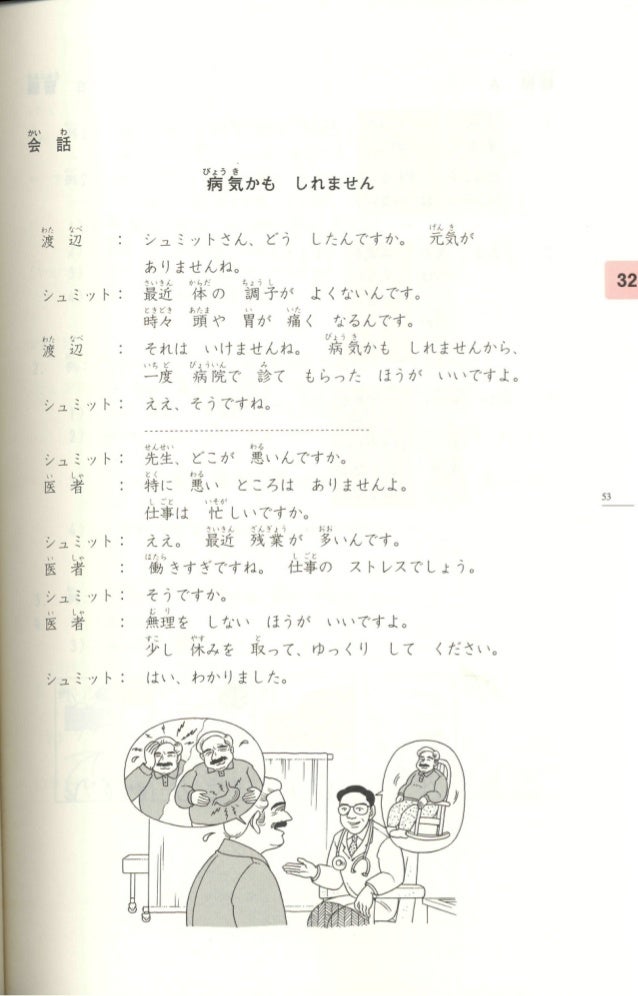 会話
病気かも しれません
渡辺 ： シュミットさん、どう したんですか。 元気が
ありませんね。
シュミット： 最近 体の 調子が よくないんです。
時々 頭や 胃が 痛く なるんです。
渡辺 ： それは いけませんね。 病気かも しれませんから、
一度 病院で 診て もらった ほうが いいですよ。
シュミット： ええ、そうですね。
シュミット： 先生、どこが 悪いんですか。
医者 ： 特に 悪い ところは ありませんよ。
仕事は 忙しいですか。
シュミット： ええ。 最近 残業が 多いんです。
医者 ： 働きすぎですね。 仕事の ストレスでしょう。
シュミット： そうですか。
医者 ： 無理を しない ほうが いいですよ。
少し 休みを 取って、ゆっくり して ください。
シュミット： はい、わかりました。
32
53